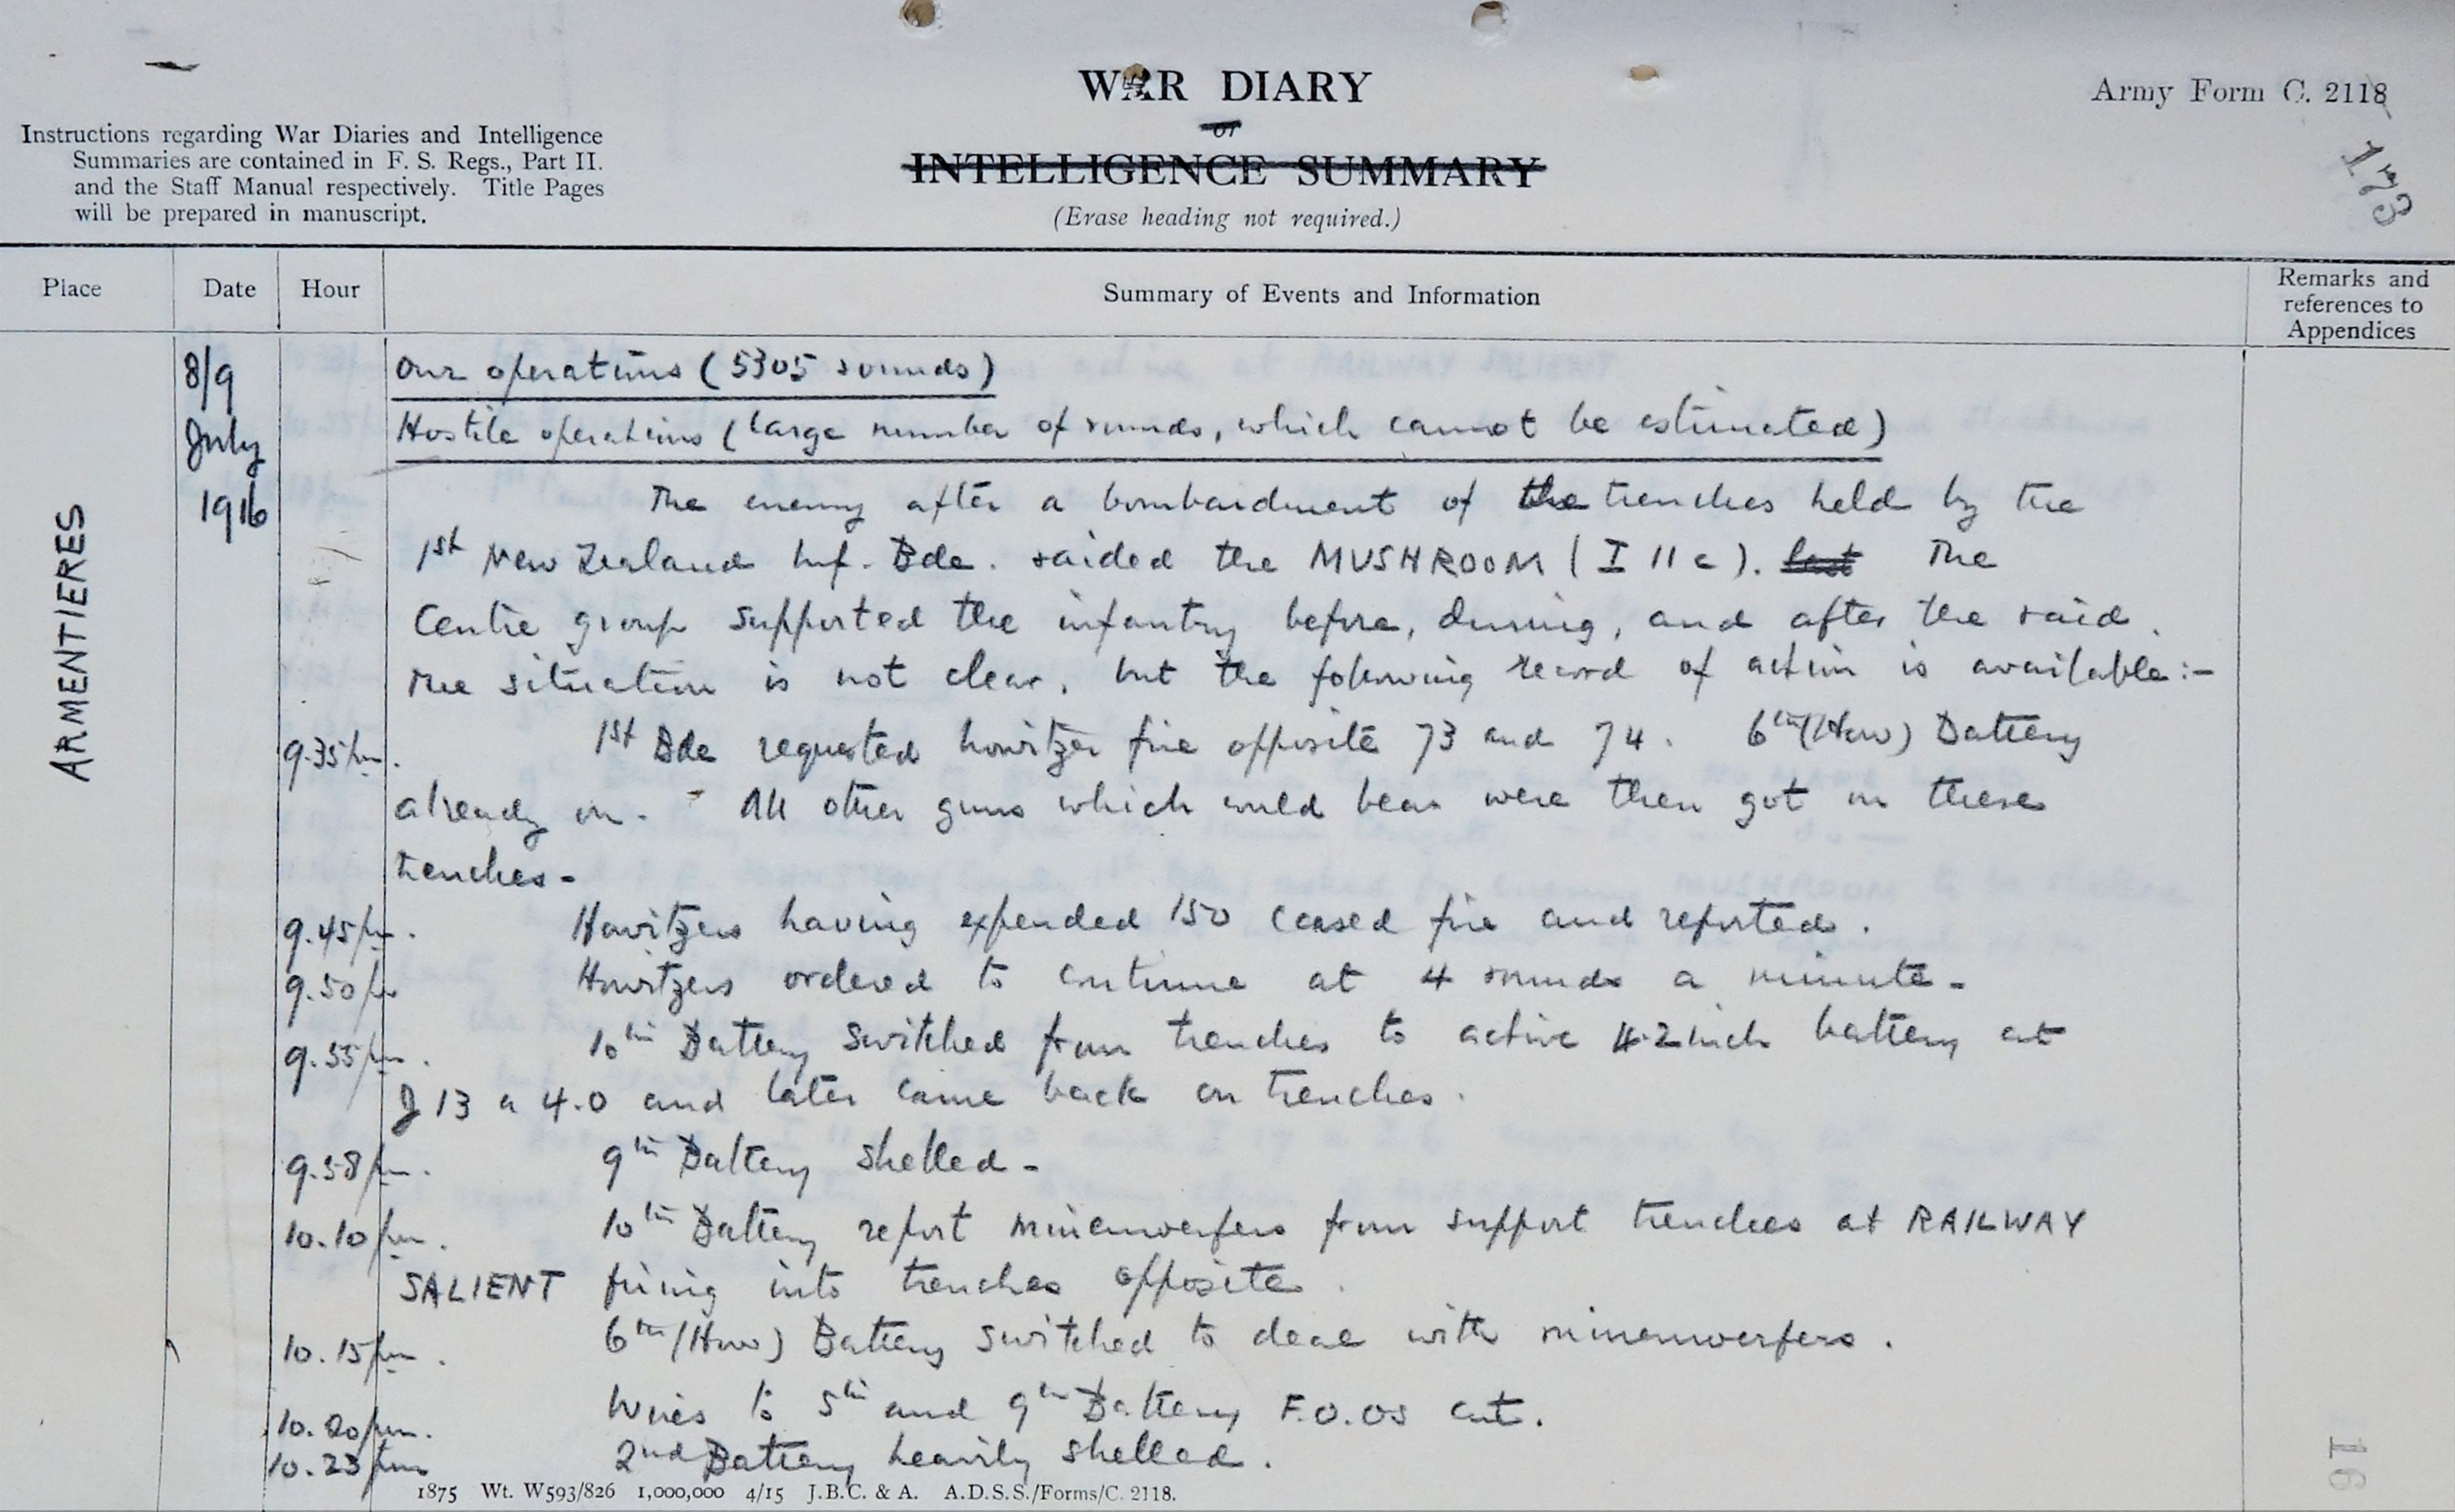 WAR DIARY
or
INTELLIGENCE SUMMARY
(Erase heading not required.)
Army Form C. 2118
173
Instructions regarding War Diaries and Intelligence
Summaries are contained in F. S. Regs., Part II.
and the Staff Manual respectively. Title Pages
will be prepared in manuscript.
Place Date Hour Summary of Events and Information Remarks and
references to
Appendices
ARMENTIERES
8/9
July
1916
Our operations (5305 rounds)
Hostile operations (large number of rounds, which cannot be estimated)
The enemy after a bombardment of the trenches held by the
1st New Zealand Inf. Bde. raided the MUSHROOM (I 11 c). The
Centre group supported the infantry before, during, and after the raid.
The situation is not clear, but the following record of action is available:-
9.35pm. 1st Bde requested howitzer fire opposite 73 and 74. 6th (How) Battery
already on. All other guns which could bear were then got on these
trenches-
9.45pm. Howitzers having expended 150 ceased fire and reported.
9.50pm Howitzers ordered to continue at 4 rounds a minute-
9.55pm. 10th Battery switched from trenches to active 4.2 inch battery at
J 13 a 4.0 and later came back on trenches.
9.58pm. 9th Battery shelled-
10.10pm. 10th Battery report minenwerfers from support trenches at RAILWAY
SALIENT firing into trenches opposite.
10.15pm. 6th (How) Battery switched to deal with minenwerfers.
10.20pm. Wires to 5th and 9th Battery F.O.Os cut.
10.23pm 2nd Battery heavily shelled.
1875 Wt. W593/826 1,000,000 4/15 J.B.C. & A. A.D.S.S./Forms/C. 2118.
16